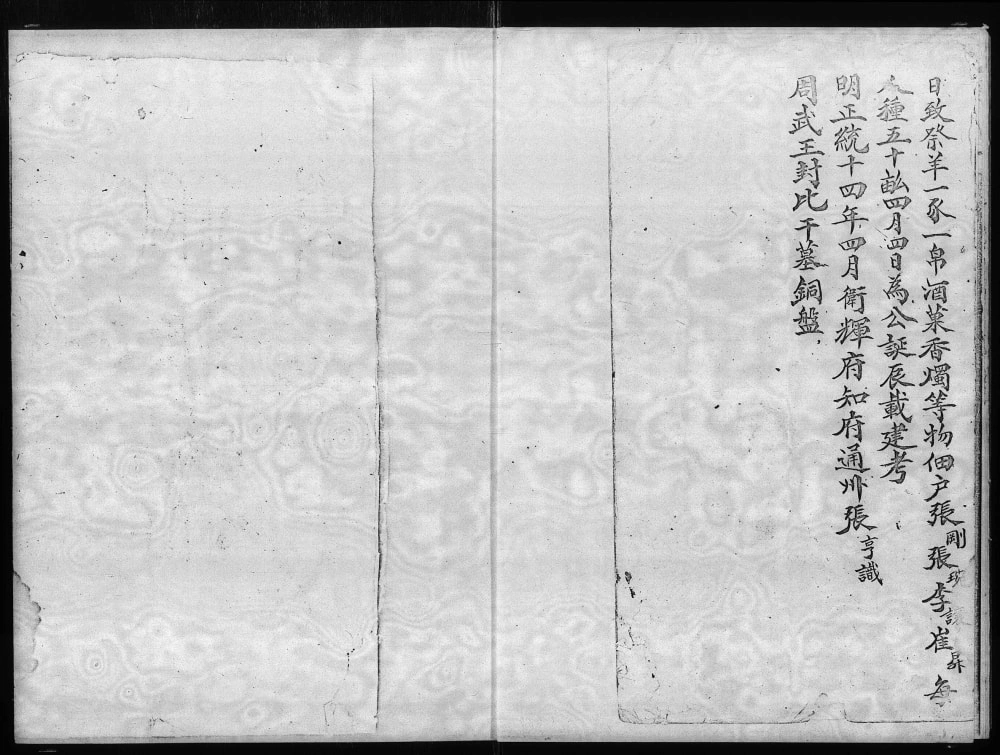 日致祭羊一豕一帛酒菓香燭等物佃户張剛張珍李讓崔昇每
人種五十畝四月四日為公誕辰載建考
明正統十四年四月衛輝府知府通州張亨識
周武王封比干墓銅盤